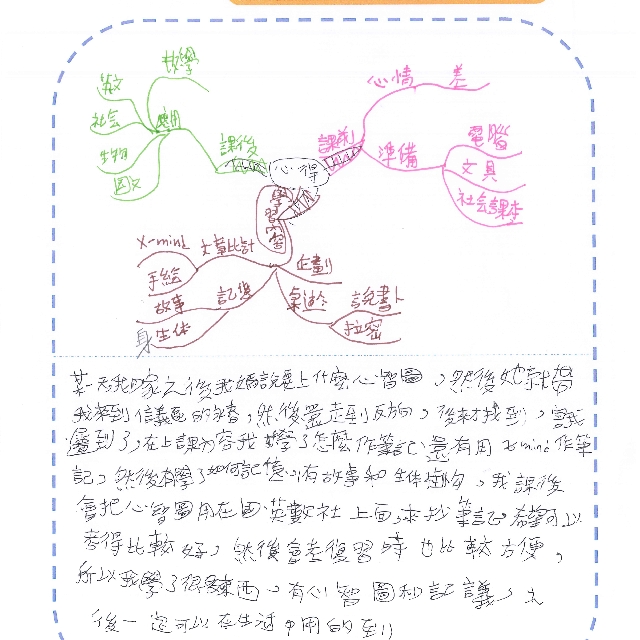 數學
心情 差
散文
社會
應用
電腦
課後
課前
準備
生物
心得
文具
國文
社會課本
學習內容
x-mind
文章比計
企劃
手繪
故事
記憶
桌遊
說書人
身生体
拉密
某一天我回家之後我媽說要上什麼心智圖,然後她就帶
我來到信義區的教室,然後還走到反向,後來才找到,
到了,在上課內容我學了怎麼作筆記,還有用 x-mind 作筆
記,然後有學了如何記憶,有故事和生体,我課後
會把心智圖用在國英數社上面,來抄筆記,希望可以
考得比較好,然後會是復習時也比較方便,
所以我學了很多東西,有心智圖和記議,
後一定可以在生活中用的到!!